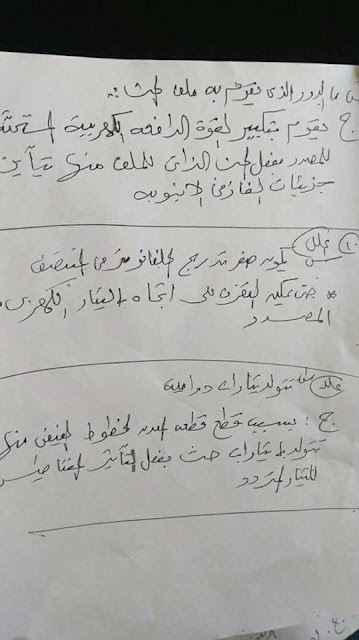 س ما الدور الذي يقوم به ملف الحث ؟
ج يقوم بتكبير القوة الدافعه الكهربية
للمصدر بفعل الحث الذاتي للملف منها تتأين
جزيئات الغاز في الانبوبه
١٠ علل
س يكون صفر تدريج الجلفانومتر في المنتصف
* حتى يمكن التعرف على اتجاه التيار الكهربي
المتردد
علل س تتولد تيارات دوامية
ج : بسبب قطع قطعه المعدن لخطوط الفيض منها
تتولد تيارات حث بفعل التأثير المغناطيسي
للتيار المتردد